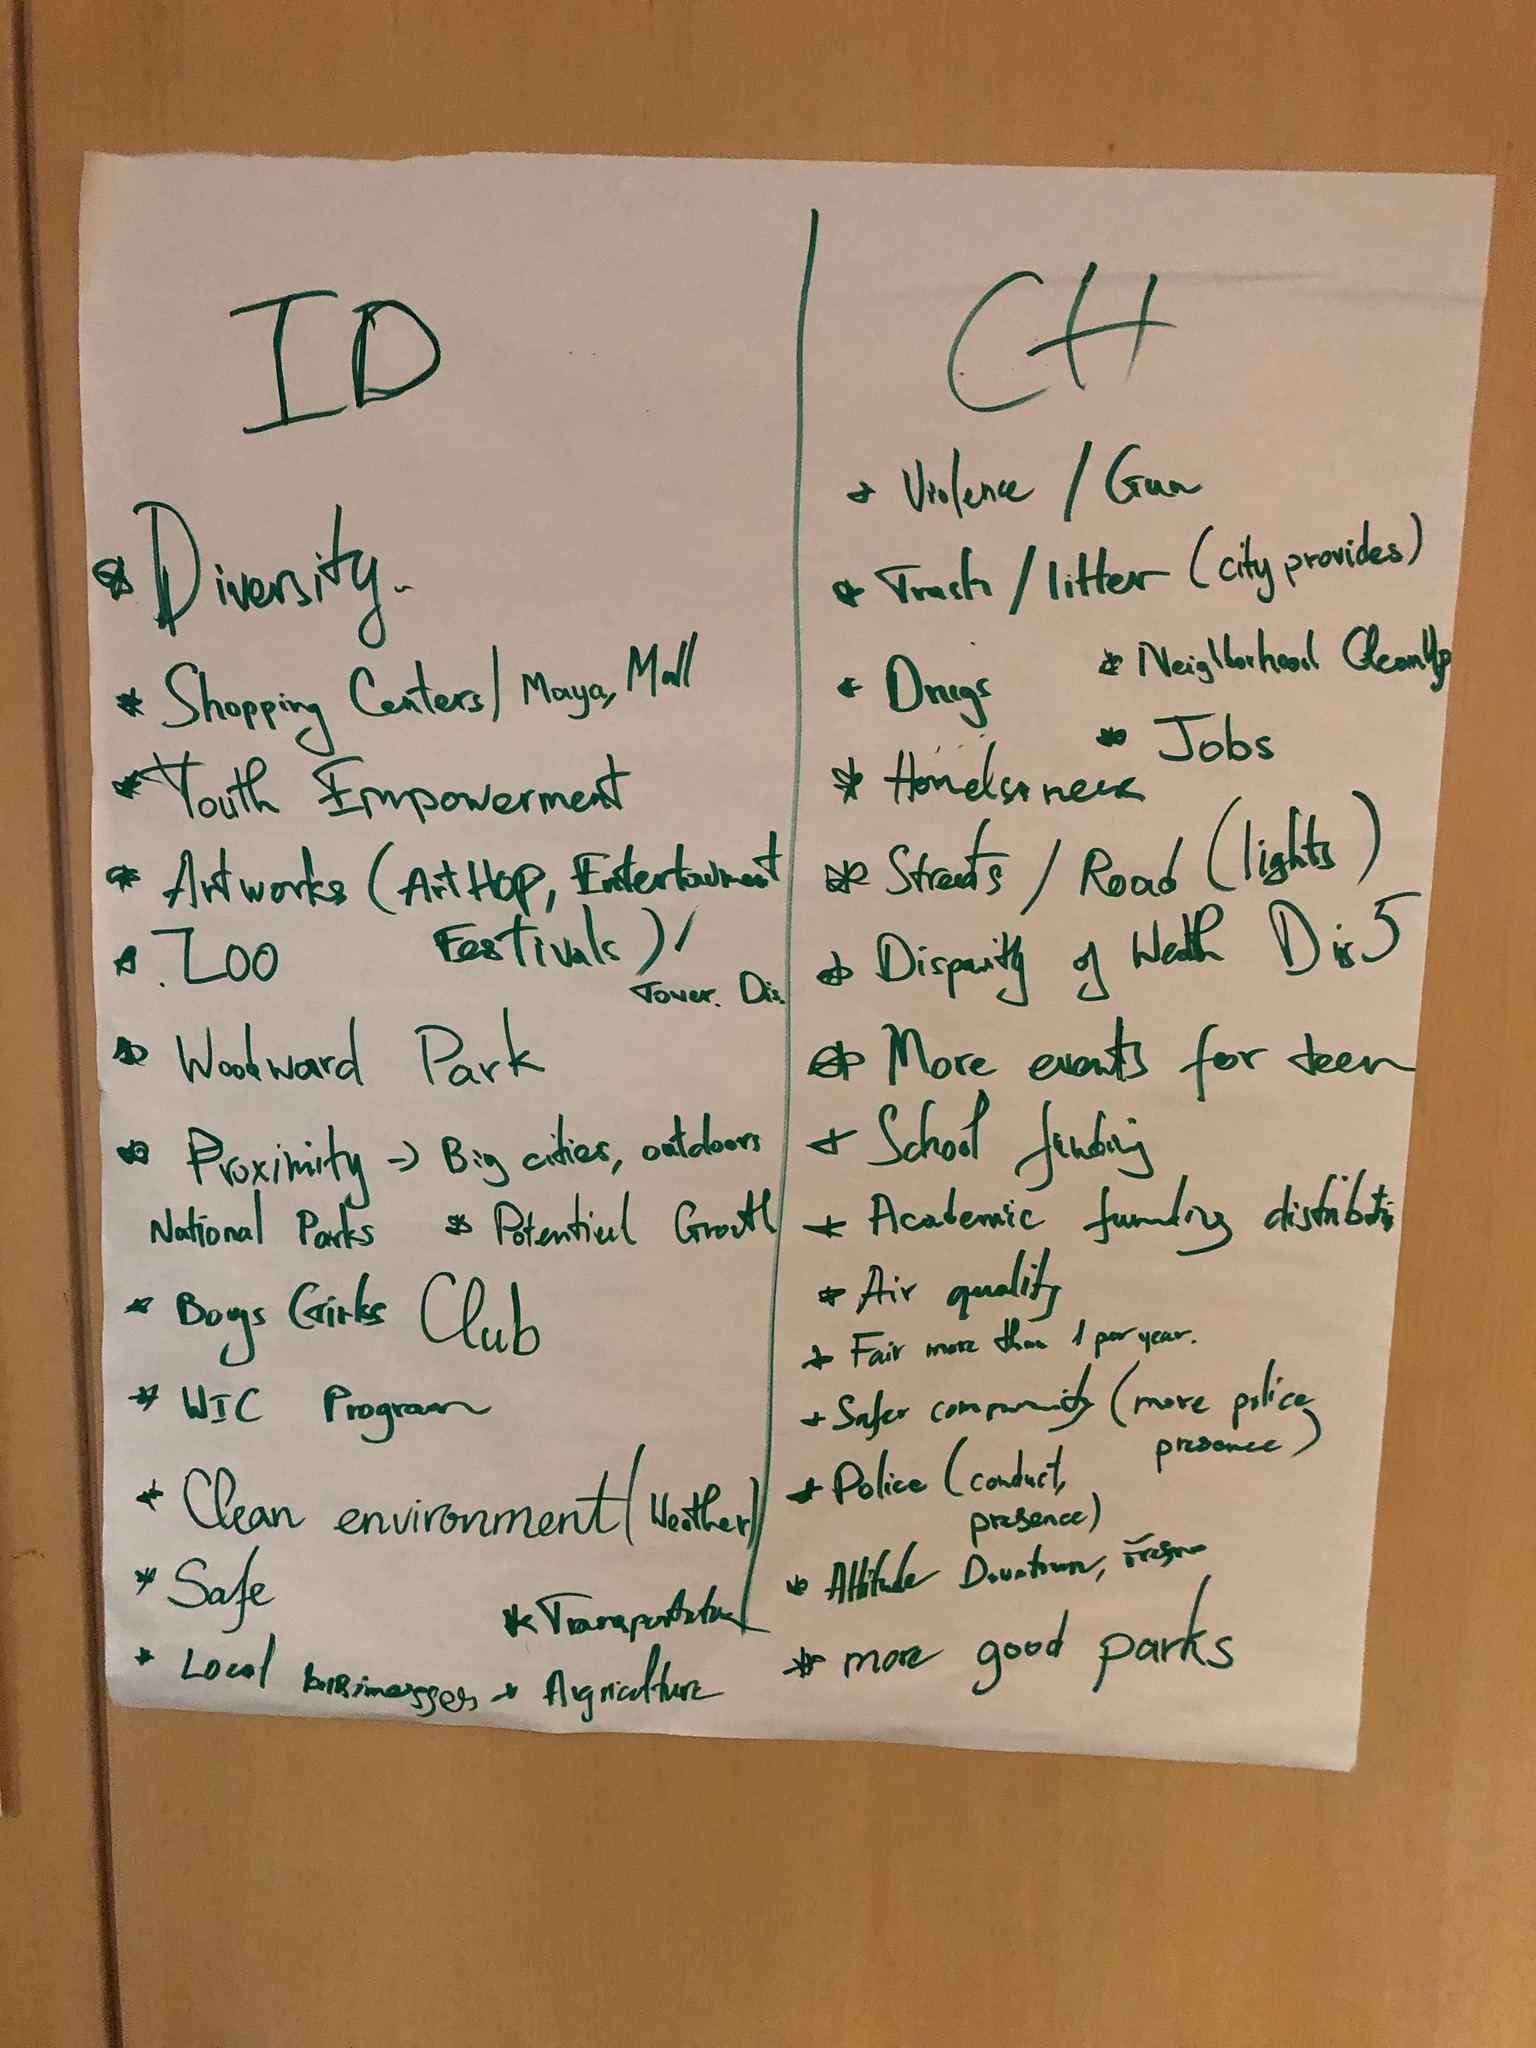 ID
* Diversity.
* Shopping Centers/ Maya, Mall
* Youth Empowerment
* Artworks (ArtHop, Entertainment
Festivals)/
* Zoo
Tower. Dis.
* Woodward Park
* Proximity → Big cities, outdoors
National Parks * Potential Growth
* Boys Girls Club
* WIC Program
* Clean environment (Weather)
* Safe
* Transportation
* Local businesses * Agriculture
CH
* Violence / Gun
* Trash / litter (city provides)
* Drugs
* Neighborhood CleanUp
* Jobs
* Homelessness
* Streets / Road (lights)
* Disparity of Wealth Dis 5
* More events for teen
* School funding
* Academic funding distribution
* Air quality
* Fair more than 1 per year.
* Safer community (more police
presence)
* Police (conduct,
presence)
* Attitude Downtown, Fresno
* more good parks